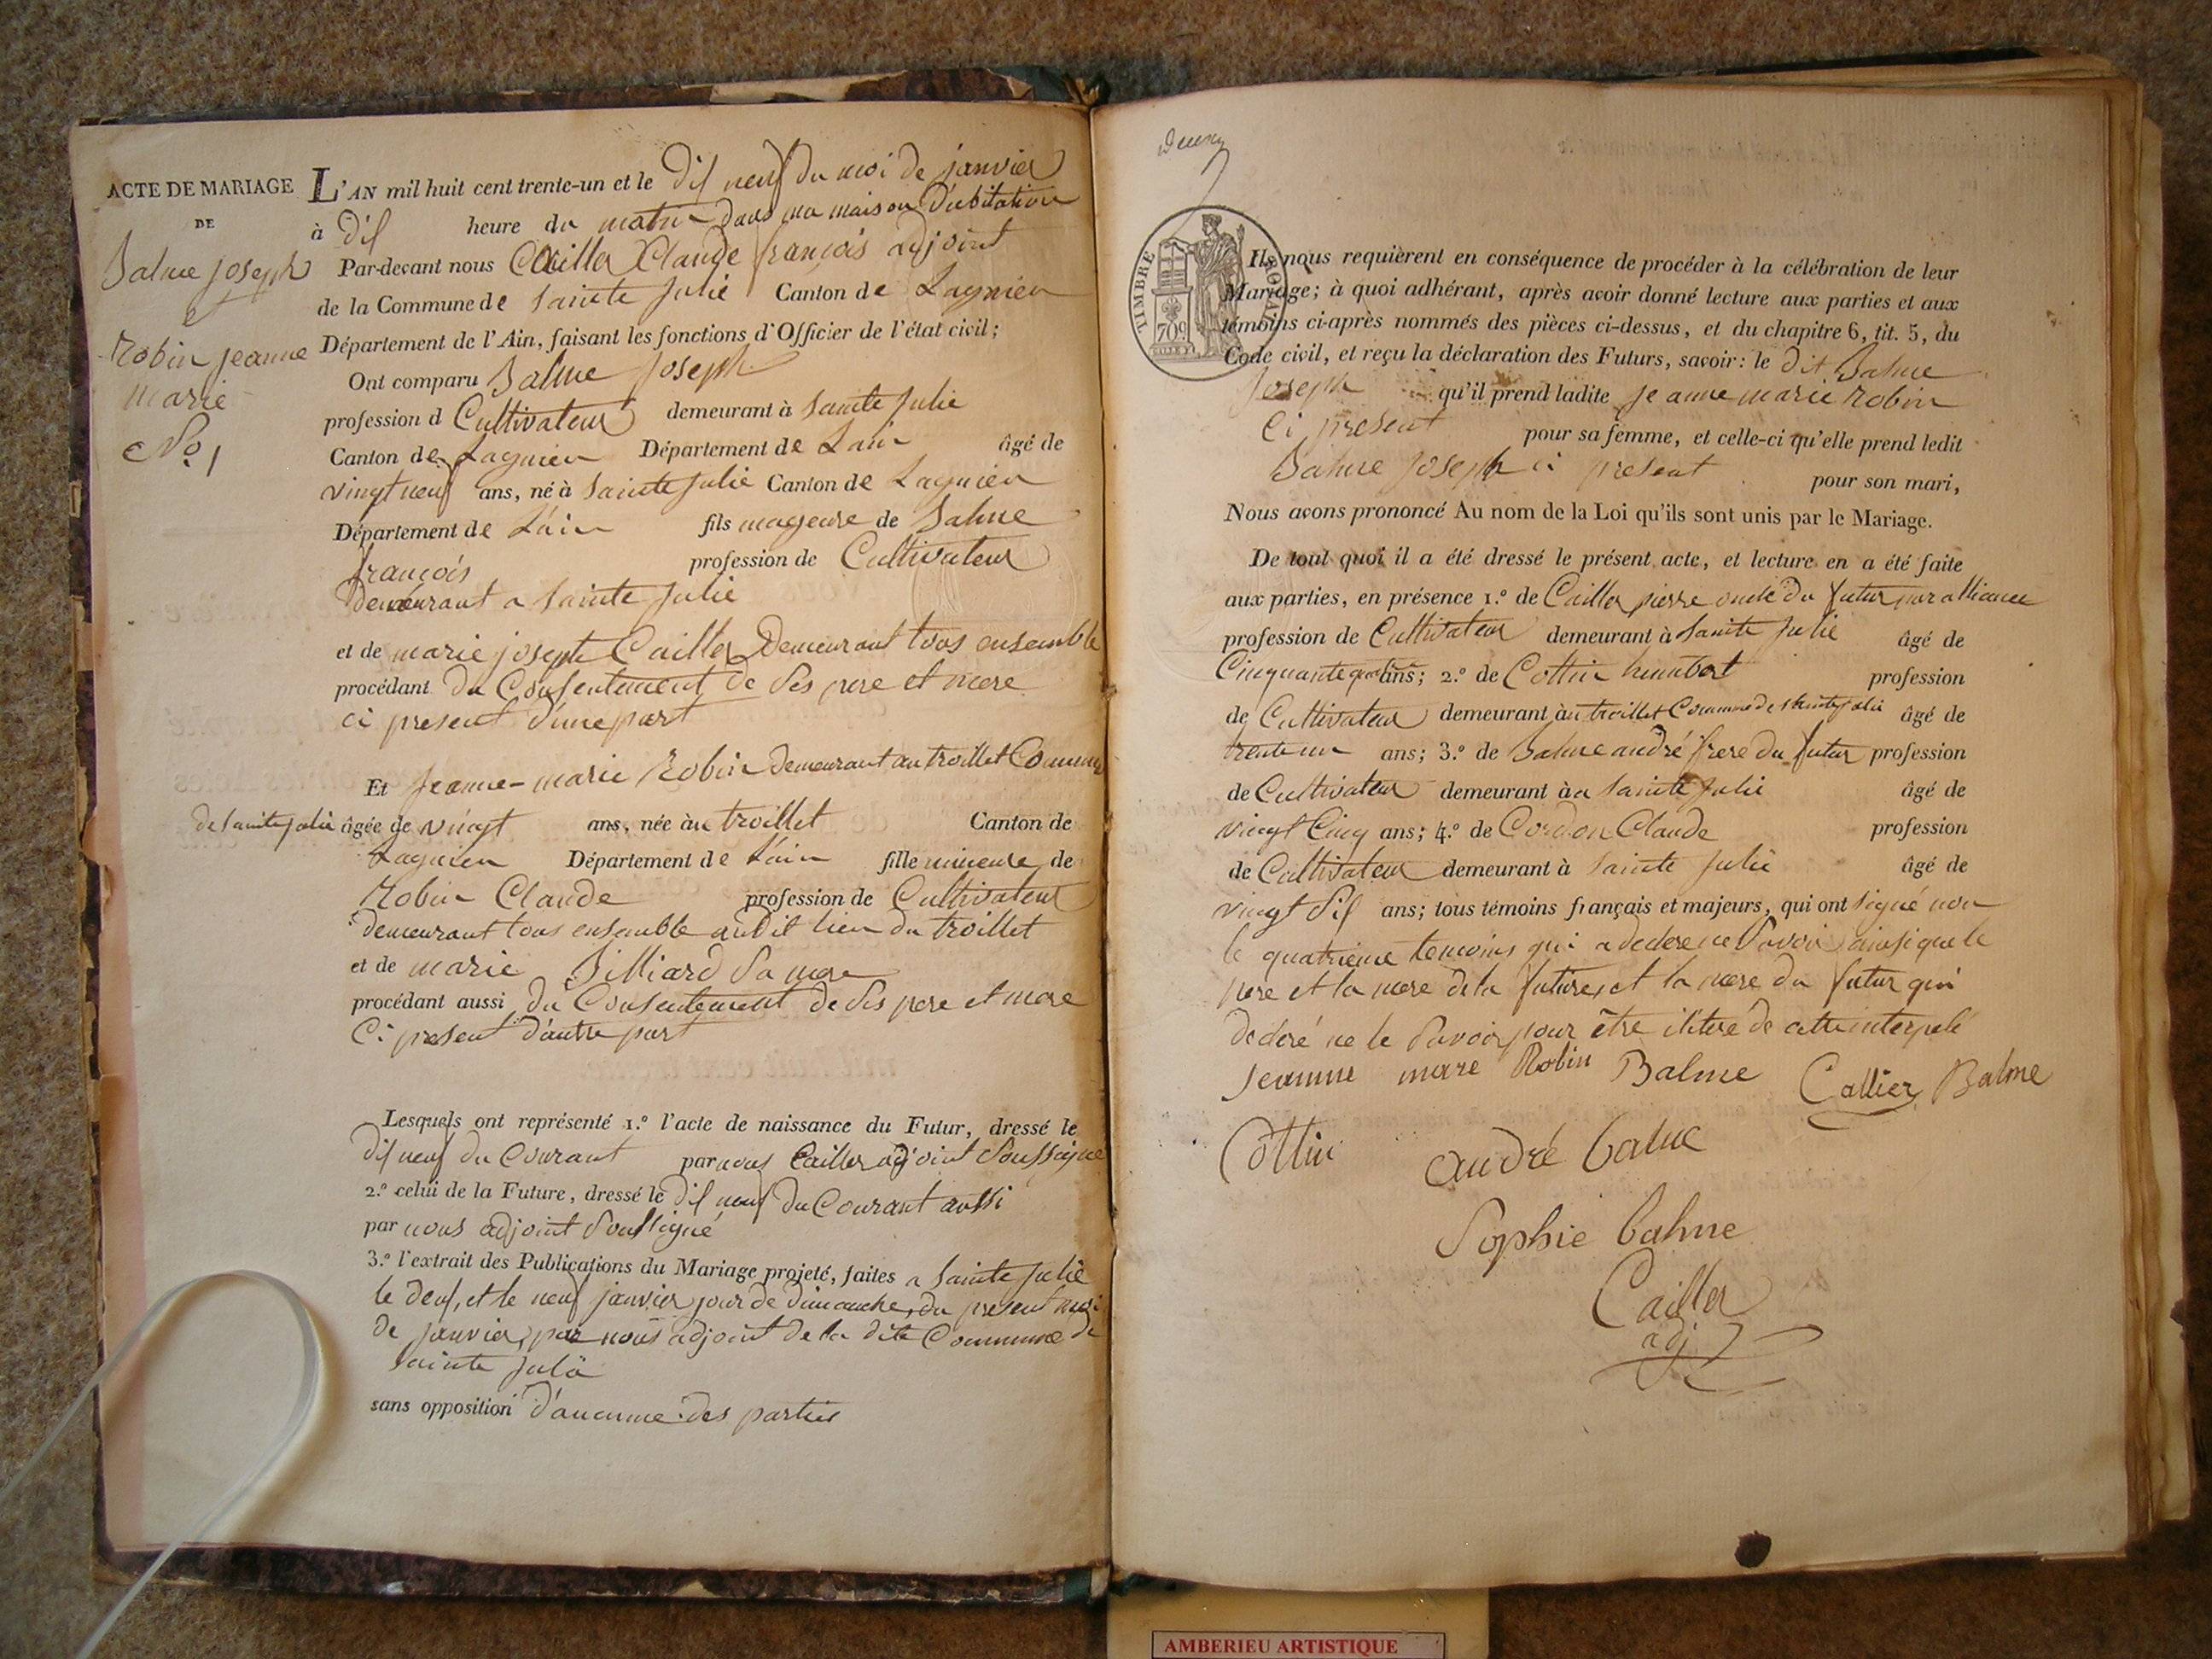 ACTE DE MARIAGE
DE
Balme joseph
et
Robin jeanne
marie
No. 1
L'AN mil huit cent trente-un et le dix neuf du moi de janvier
à dix heure du matin dans ma maison d'abitation
Par-devant nous Cailler Claude françois adjoint
de la Commune de Sainte julie Canton de Lagnieu
Département de l'Ain, faisant les fonctions d'Officier de l'état civil;
Ont comparu Balme joseph
profession d Cultivateur demeurant à Sainte julie
Canton de Lagnieu Département de Lain âgé de
vingt neuf ans, né à Sainte julie Canton de Lagnieu
Département de L'ain fils mageure de Balme
françois profession de Cultivateur
demeurant a Sainte julie
et de marie joseph Cailler demeurant tous ensemble
procédant du Consentement de Ses pere et mere
ci present d'une part
Et jeanne-marie Robin demeurant au troillet Commune
de Sainte julie âgée de vingt ans, née àu troillet Canton de
Lagnieu Département de L'ain fille mineure de
Robin Claude profession de Cultivateur
demeurant tous ensemble audit lieu du troillet
et de marie Billiard Sa mere
procédant aussi du Consentement de Ses pere et mere
Ci present d'autre part
Lesquels ont représenté 1.º l'acte de naissance du Futur, dressé le
dix neuf du Courant par nous Cailler adjoint Soussigné
2.º celui de la Future, dressé le dix neuf du Courant aussi
par nous adjoint Soussigné
3.º l'extrait des Publications du Mariage projeté, faites a Sainte julie
le deux, et le neuf janvier jour de dimanche, du present moi
de janvier, par nous adjoint de la dite Commune de
Sainte julie
sans opposition d'aucune des parties
TIMBRE ROYAL
70c
Ils nous requièrent en conséquence de procéder à la célébration de leur
Mariage; à quoi adhérant, après avoir donné lecture aux parties et aux
témoins ci-après nommés des pièces ci-dessus, et du chapitre 6, tit. 5, du
Code civil, et reçu la déclaration des Futurs, savoir: le dit Balme
Joseph qu'il prend ladite jeanne marie Robin
Ci present pour sa femme, et celle-ci qu'elle prend ledit
Balme joseph ci present pour son mari,
Nous avons prononcé Au nom de la Loi qu'ils sont unis par le Mariage.
De tout quoi il a été dressé le présent acte, et lecture en a été faite
aux parties, en présence 1.º de Cailler pierre oncle du futur par alliance
profession de Cultivateur demeurant à Sainte julie âgé de
Cinquante ans; 2.º de Cottin humbert profession
de Cultivateur demeurant àu troillet Commune de Sainte julie âgé de
trente un ans; 3.º de Balme andré frere du futur profession
de Cultivateur demeurant àa Sainte julie âgé de
vingt Cinq ans; 4.º de Cordon Claude profession
de Cultivateur demeurant à Sainte julie âgé de
vingt Six ans; tous témoins français et majeurs, qui ont signé non
le quatrieme temoins qui a declere ne Savoir ainsi que le
pere et la mere de la future, et la mere du futur qui
decleré ne le Savoir pour être de interpelé
Jeanne mare Robin Balme Callier Balme
Cottin andré balme
Sophie balme
Cailler
adj
AMBERIEU ARTISTIQUE